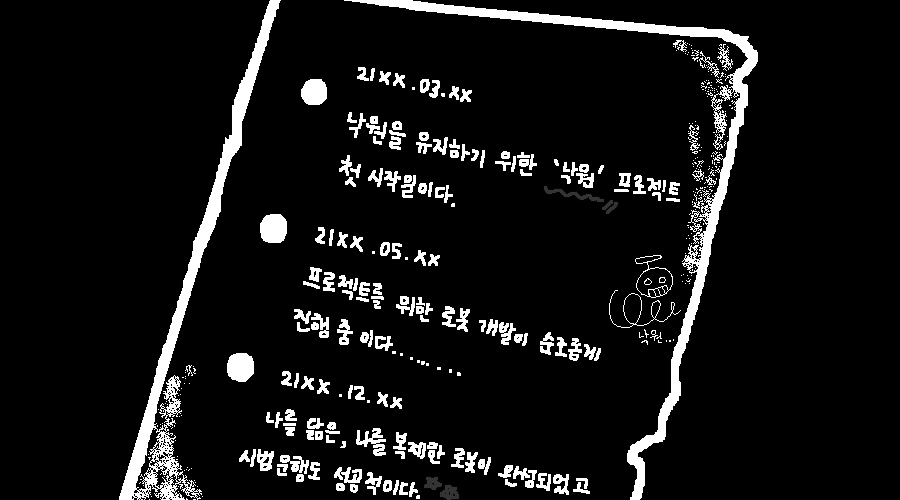 21XX.03.XX
낙원을 유지하기 위한 '낙원' 프로젝트
첫 시작일이다.
21XX.05.XX
프로젝트를 위한 로봇 개발이 순조롭게
진행 중 이다........
낙원...
21XX.12.XX
나를 닮은, 나를 복제한 로봇이 완성되었고
시범운행도 성공적이다.